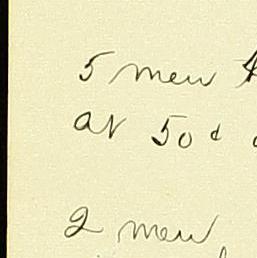 5 men
at 50 d
2 men